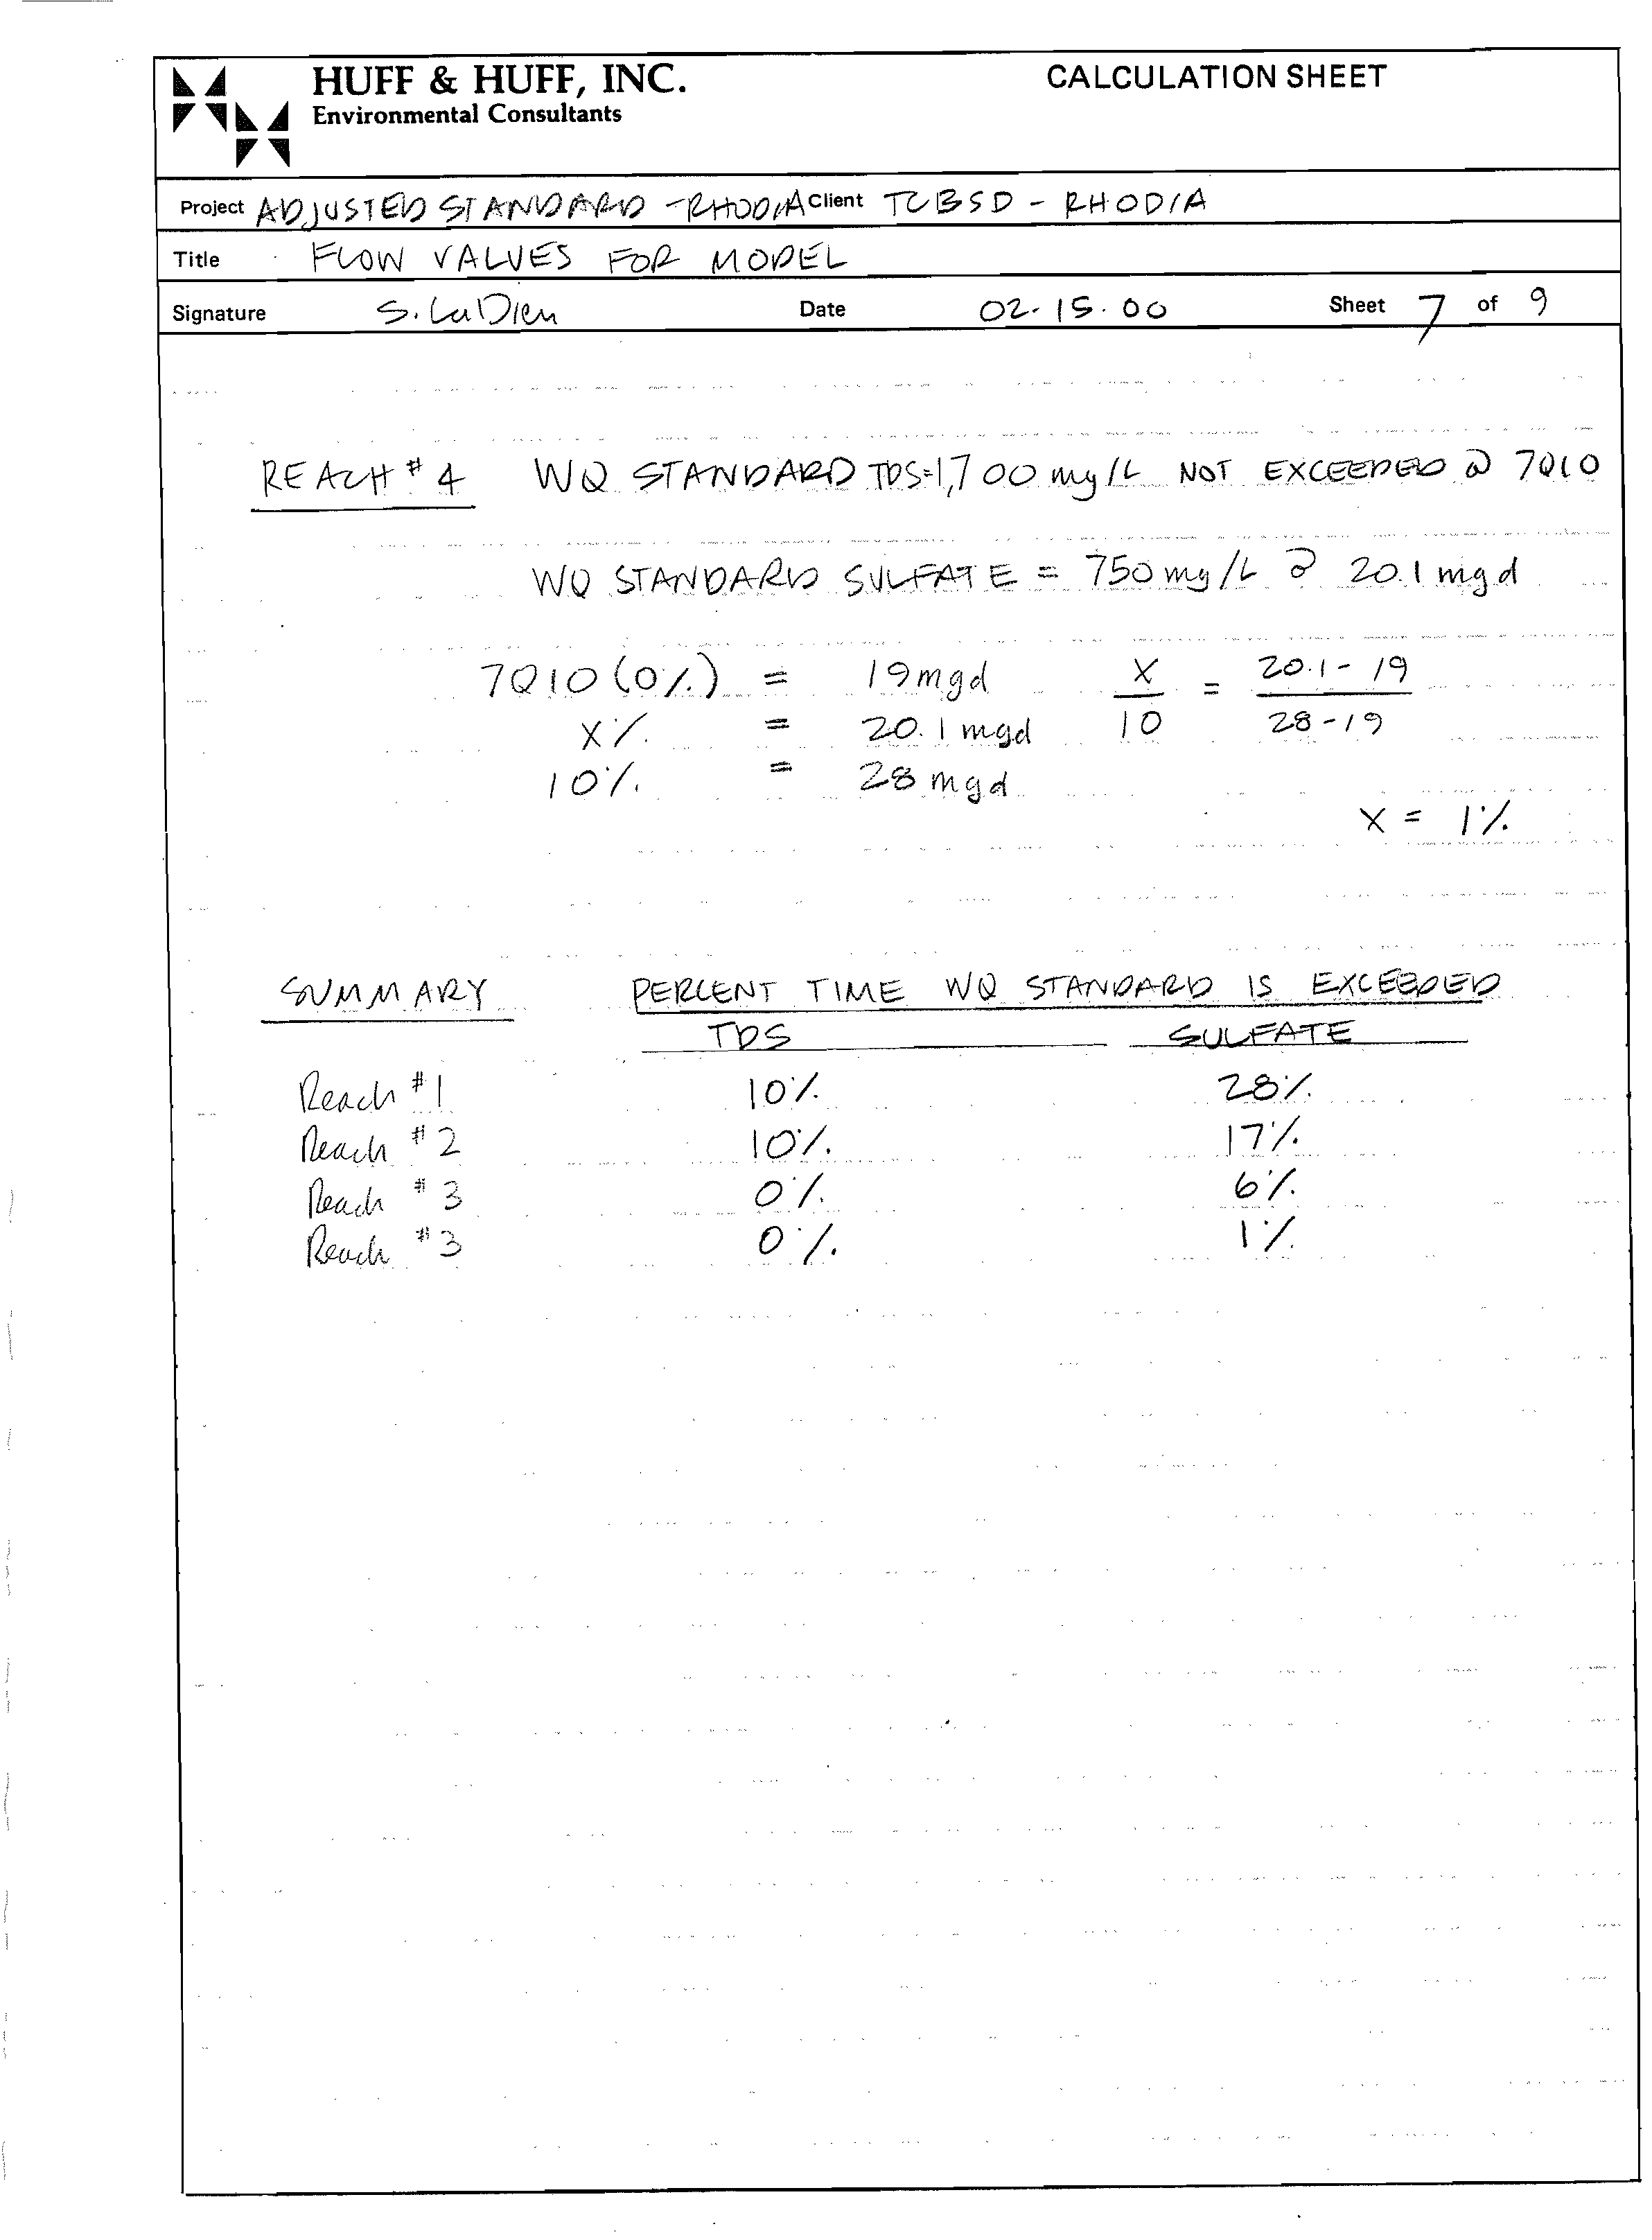 HUFF & HUFF, INC. CALCULATION SHEET
Environmental Consultants
Project ADJUSTED STANDARD - RHODIA Client TCBSD - RHODIA
Title FLOW VALUES FOR MODEL
Signature S. LaDieu Date 02.15.00 Sheet 7 of 9
REACH #4 WQ STANDARD TDS=1,700 mg/L NOT EXCEEDED @ 7Q10
WQ STANDARD SULFATE = 750 mg/L @ 20.1 mgd
7Q10 (0%) = 19 mgd X/10 = 20.1 - 19/28 - 19
X% = 20.1 mgd
10% = 28 mgd
X = 1%
SUMMARY PERCENT TIME WQ STANDARD IS EXCEEDED
TDS SULFATE
Reach #1 10% 28%
Reach #2 10% 17%
Reach #3 0% 6%
Reach #3 0% 1%